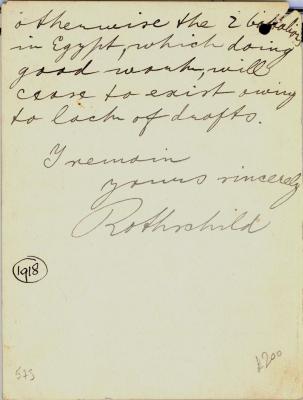 otherwise the 2
in Egypt, which doing
good work, will
cease to exist owing
to lack of drafts.
I remain
yours sincerely
Rothschild
1918
573
£200